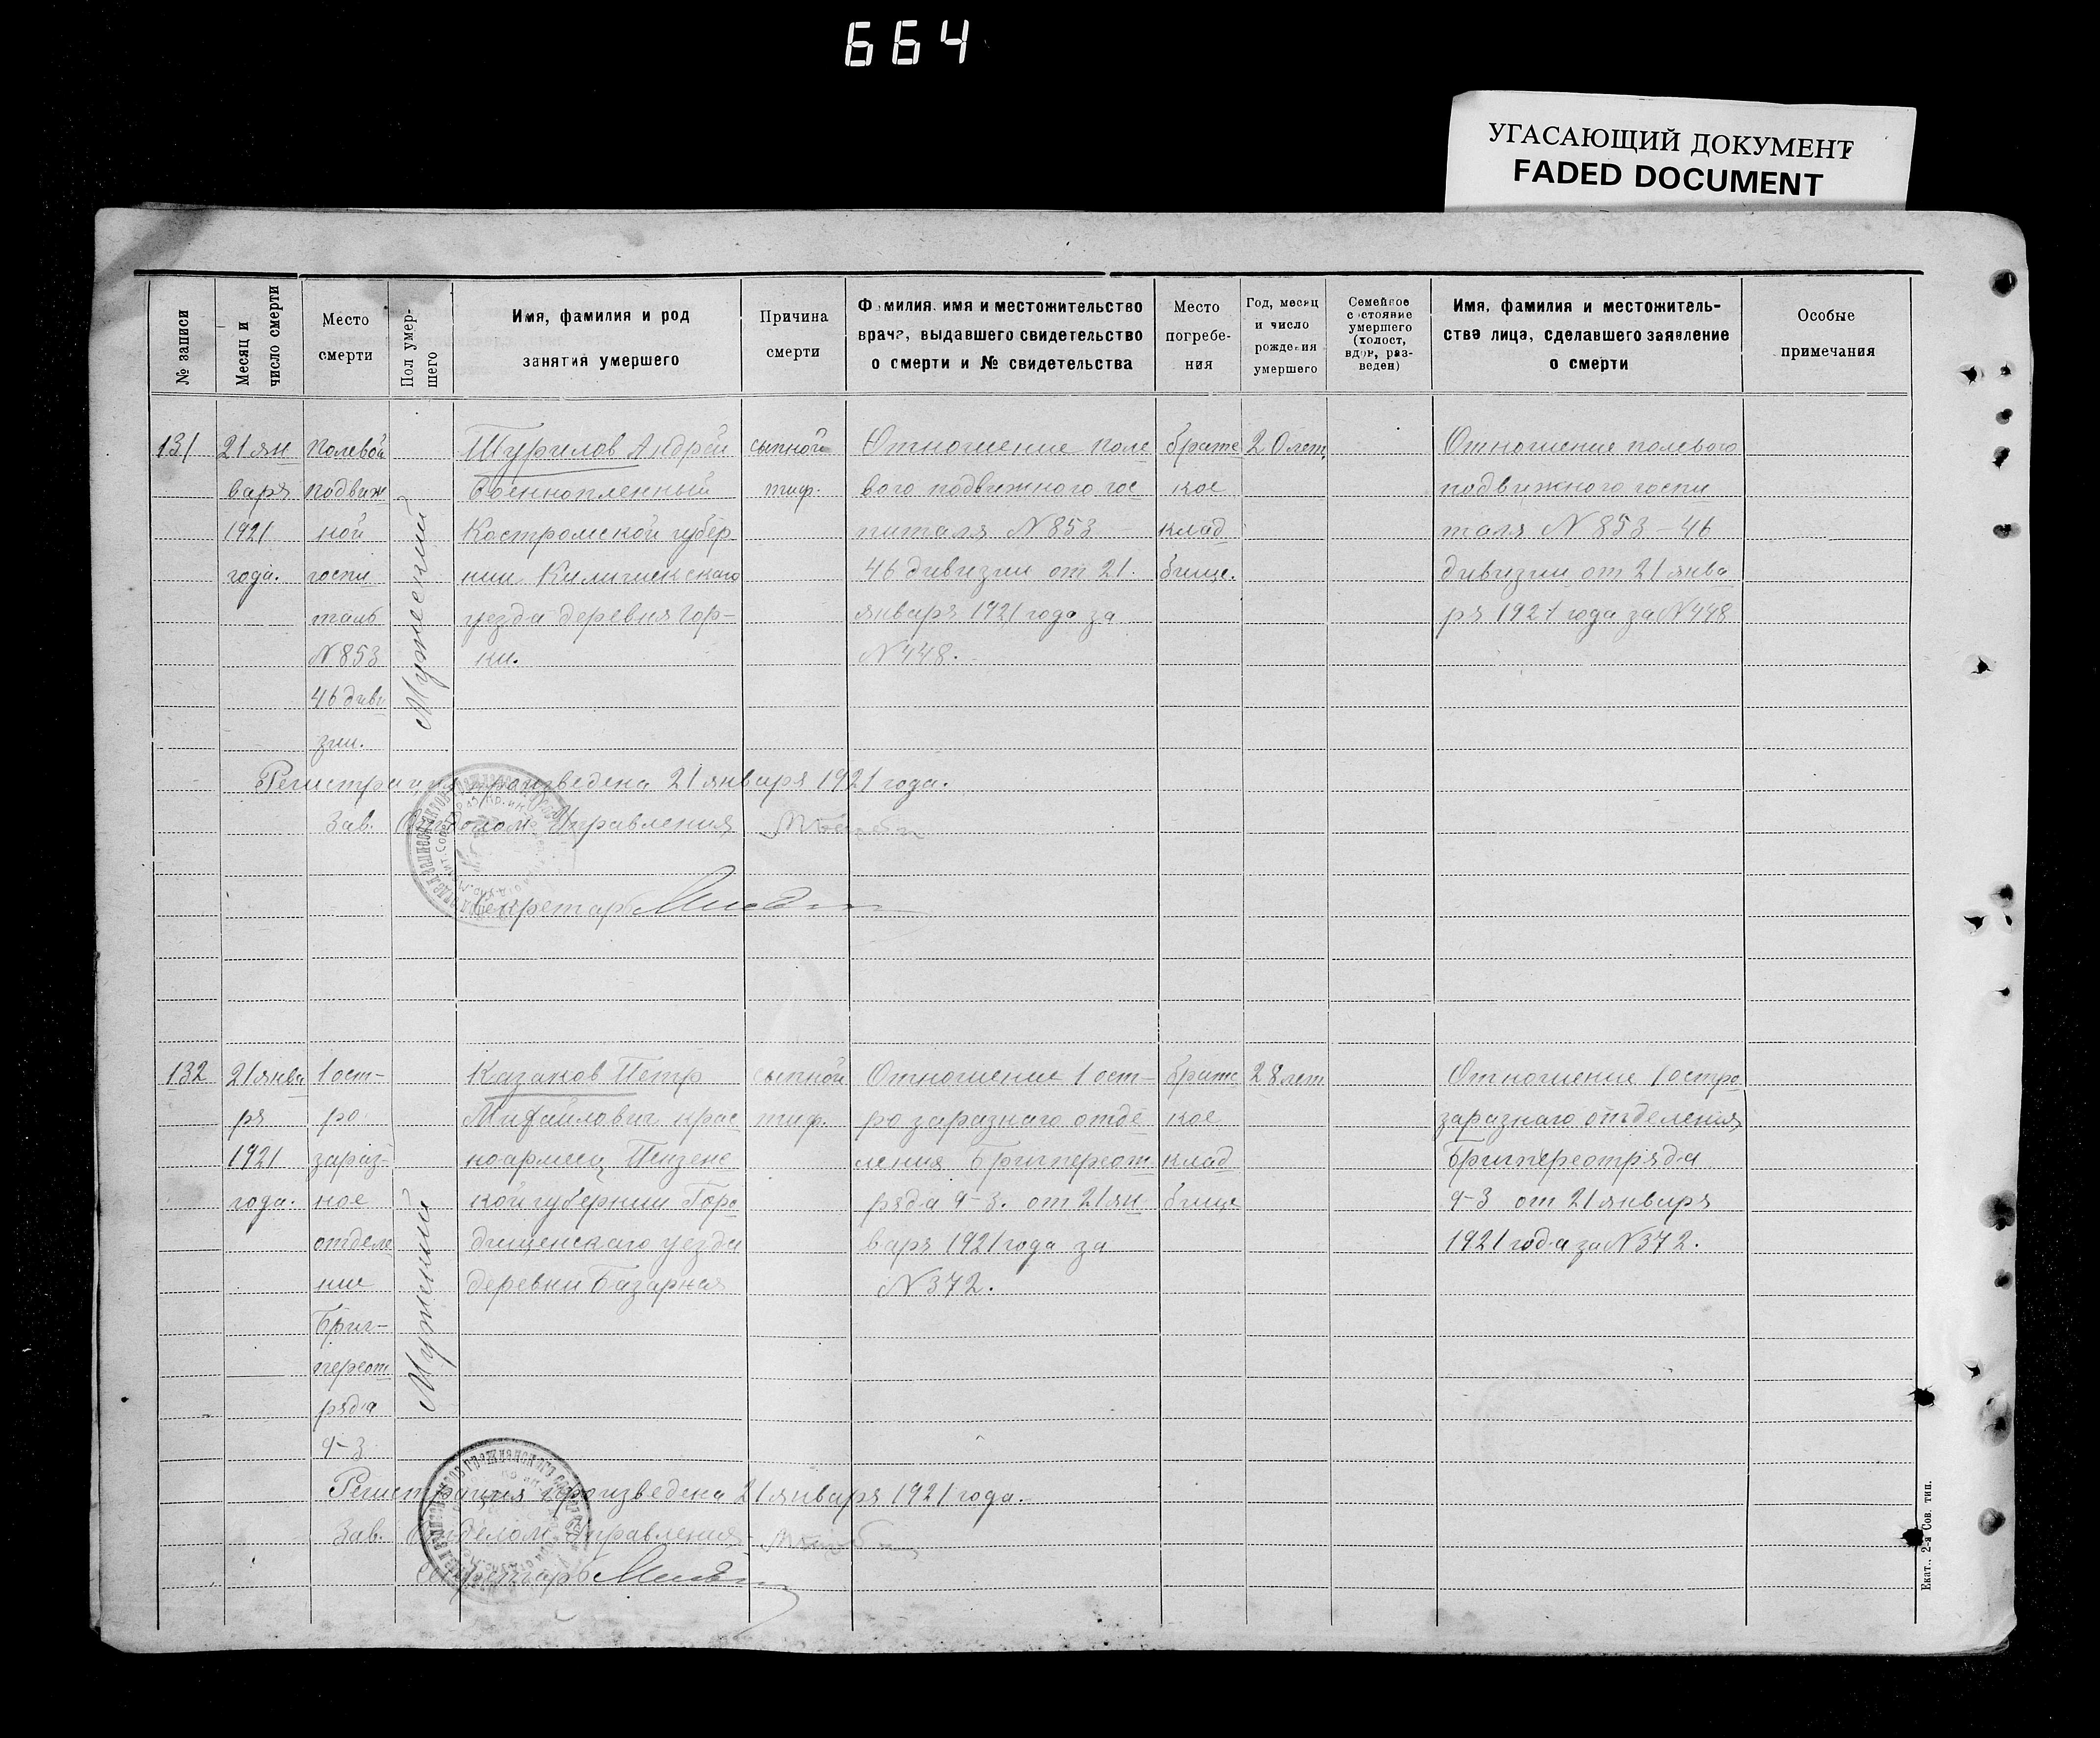 664
УГАСАЮЩИЙ ДОКУМЕНТ
FADED DOCUMENT
№ записи
Месяц и
число смерти
Место
смерти
Пол умер-
шего
Имя, фамилия и род
занятия умершего
Причина
смерти
Фамилия, имя и местожительство
врача, выдавшего свидетельство
о смерти и № свидетельства
Место
погребе-
ния
Год, месяц
и число
рождения
умершего
Семейное
состояние
умершего
(холост,
вдов, раз-
веден)
Имя, фамилия и местожитель-
ства лица, сделавшего заявление
о смерти
Особые
примечания
131
21 ян
варя
1921
года.
полевой
подвиж
ной
госпи
таль
N 853
46 диви
зии.
Мужеский
Шурилов Андрей
военнопленный
Костромской губер
нии
уезда деревня Гор-
ки.
сыпной
тиф.
Отношение поле
вого подвижного гос
питаля N 853
46 дивизии от 21
января 1921 года за
N 448.
братс
кое
клад
бище.
20 лет
Отношение полевого
подвижного госпи
таля N 853 - 46
дивизии от 21 янва
ря 1921 года за N 448
Регистрация произведена 21 января 1921 года.
Зав. Отделом Управления
Секретарь
132
21 янва
ря
1921
года.
1 ост-
ро
зараз-
ное
отделе
ние
Бриг-
переот
ряда
9-3
Мужеский
Казаков Петр
Михайлович крас
ноармеец Пензенс
кой губернии Горо
дищенскаго уезда
деревни Базарная
сыпной
тиф.
Отношение 1 ост-
ро заразнаго отде
ления Бригпереот
ряда 9-3. от 21 ян
варя 1921 года за
N 372.
братс
кое
клад
бище
28 лет
Отношение 1 остро
заразнаго отделения
Бригпереотряда
9-3 от 21 января
1921 года за N 372.
Регистрация произведена 21 января 1921 года.
Зав. Отделом Управления
Секретарь
Екат., 2-я Сов. тип.